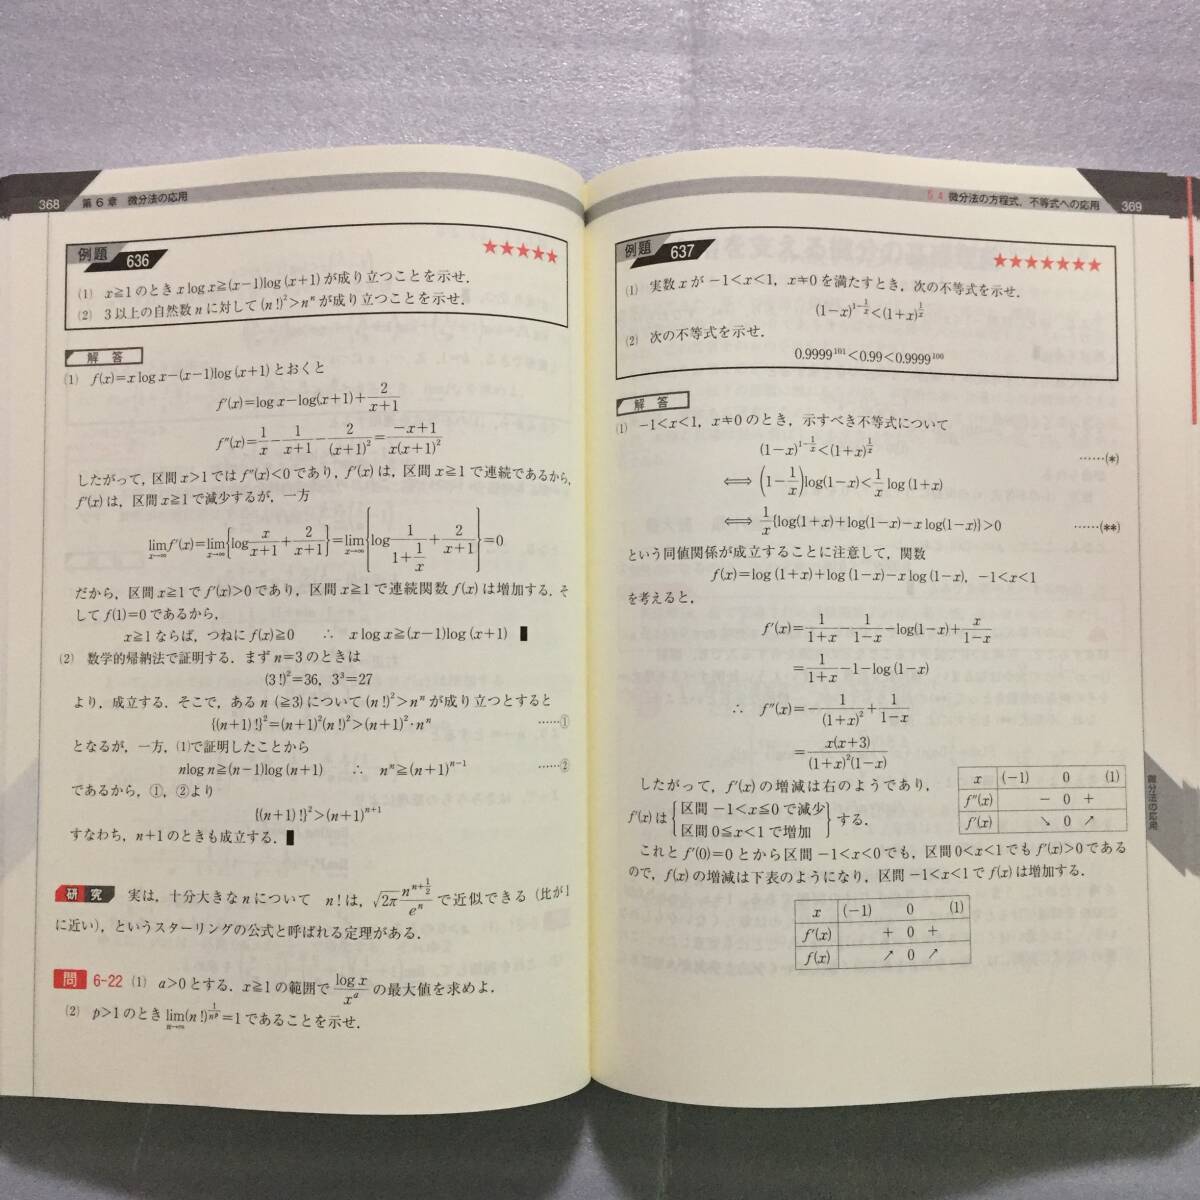 368 第6章 微分法の応用
例題 636 ★★★★★
(1) x≧1のとき x log x≧(x−1)log(x+1)が成り立つことを示せ.
(2) 3以上の自然数nに対して(n!)²>nⁿが成り立つことを示せ.
解答
(1) f(x)=x log x−(x−1)log(x+1)とおくと
f′(x)=log x−log(x+1)+2/(x+1)
f″(x)=1/x−1/(x+1)−2/(x+1)²=(−x+1)/(x(x+1)²)
したがって,区間 x>1ではf″(x)<0であり,f′(x)は,区間 x≧1で連続であるから,
f′(x)は,区間x≧1で減少するが,一方
lim_{x→∞}f′(x)=lim_{x→∞}{log x/(x+1)+2/(x+1)}=lim_{x→∞}{log 1/(1+1/x)+2/(x+1)}=0
だから,区間x≧1でf′(x)>0であり,区間x≧1で連続関数f(x)は増加する.そ
してf(1)=0であるから,
x≧1ならば,つねにf(x)≧0 ∴ x log x≧(x−1)log(x+1) ▮
(2) 数学的帰納法で証明する.まずn=3のときは
(3!)²=36, 3³=27
より,成立する.そこで,あるn (≧3)について(n!)²>nⁿが成り立つとすると
{(n+1)!}²=(n+1)²(n!)²>(n+1)²·nⁿ ……①
となるが,一方,(1)で証明したことから
n log n≧(n−1)log(n+1) ∴ nⁿ≧(n+1)ⁿ⁻¹ ……②
であるから,①,②より
{(n+1)!}²>(n+1)ⁿ⁺¹
すなわち,n+1のときも成立する.▮
研究 実は,十分大きなnについて n!は,√2π n^{n+1/2}/eⁿで近似できる(比が1
に近い),というスターリングの公式と呼ばれる定理がある.
問 6-22 (1) a>0とする.x≧1の範囲で log x/xᵃ の最大値を求めよ.
(2) p>1のとき lim_{n→∞}(n!)^{1/nᵖ}=1であることを示せ.
6.4 微分法の方程式,不等式への応用 369
例題 637 ★★★★★★★
(1) 実数xが−1<x<1, x≠0を満たすとき,次の不等式を示せ.
(1−x)^{1−1/x}<(1+x)^{1/x}
(2) 次の不等式を示せ.
0.9999¹⁰¹<0.99<0.9999¹⁰⁰
解答
(1) −1<x<1, x≠0のとき,示すべき不等式について
(1−x)^{1−1/x}<(1+x)^{1/x} ……(*)
⟺ (1−1/x)log(1−x)<1/x log(1+x)
⟺ 1/x{log(1+x)+log(1−x)−x log(1−x)}>0 ……(**)
という同値関係が成立することに注意して,関数
f(x)=log(1+x)+log(1−x)−x log(1−x), −1<x<1
を考えると,
f′(x)=1/(1+x)−1/(1−x)−log(1−x)+x/(1−x)
=1/(1+x)−1−log(1−x)
∴ f″(x)=−1/(1+x)²+1/(1−x)
=x(x+3)/((1+x)²(1−x))
したがって,f′(x)の増減は右のようであり,
f′(x)は{区間 −1<x≦0で減少
区間 0≦x<1で増加}する.
x (−1) 0 (1)
f″(x) − 0 +
f′(x) ↘ 0 ↗
これとf′(0)=0とから区間−1<x<0でも,区間0<x<1でもf′(x)>0である
ので,f(x)の増減は下表のようになり,区間−1<x<1でf(x)は増加する.
x (−1) 0 (1)
f′(x) + 0 +
f(x) ↗ 0 ↗
微分法の応用